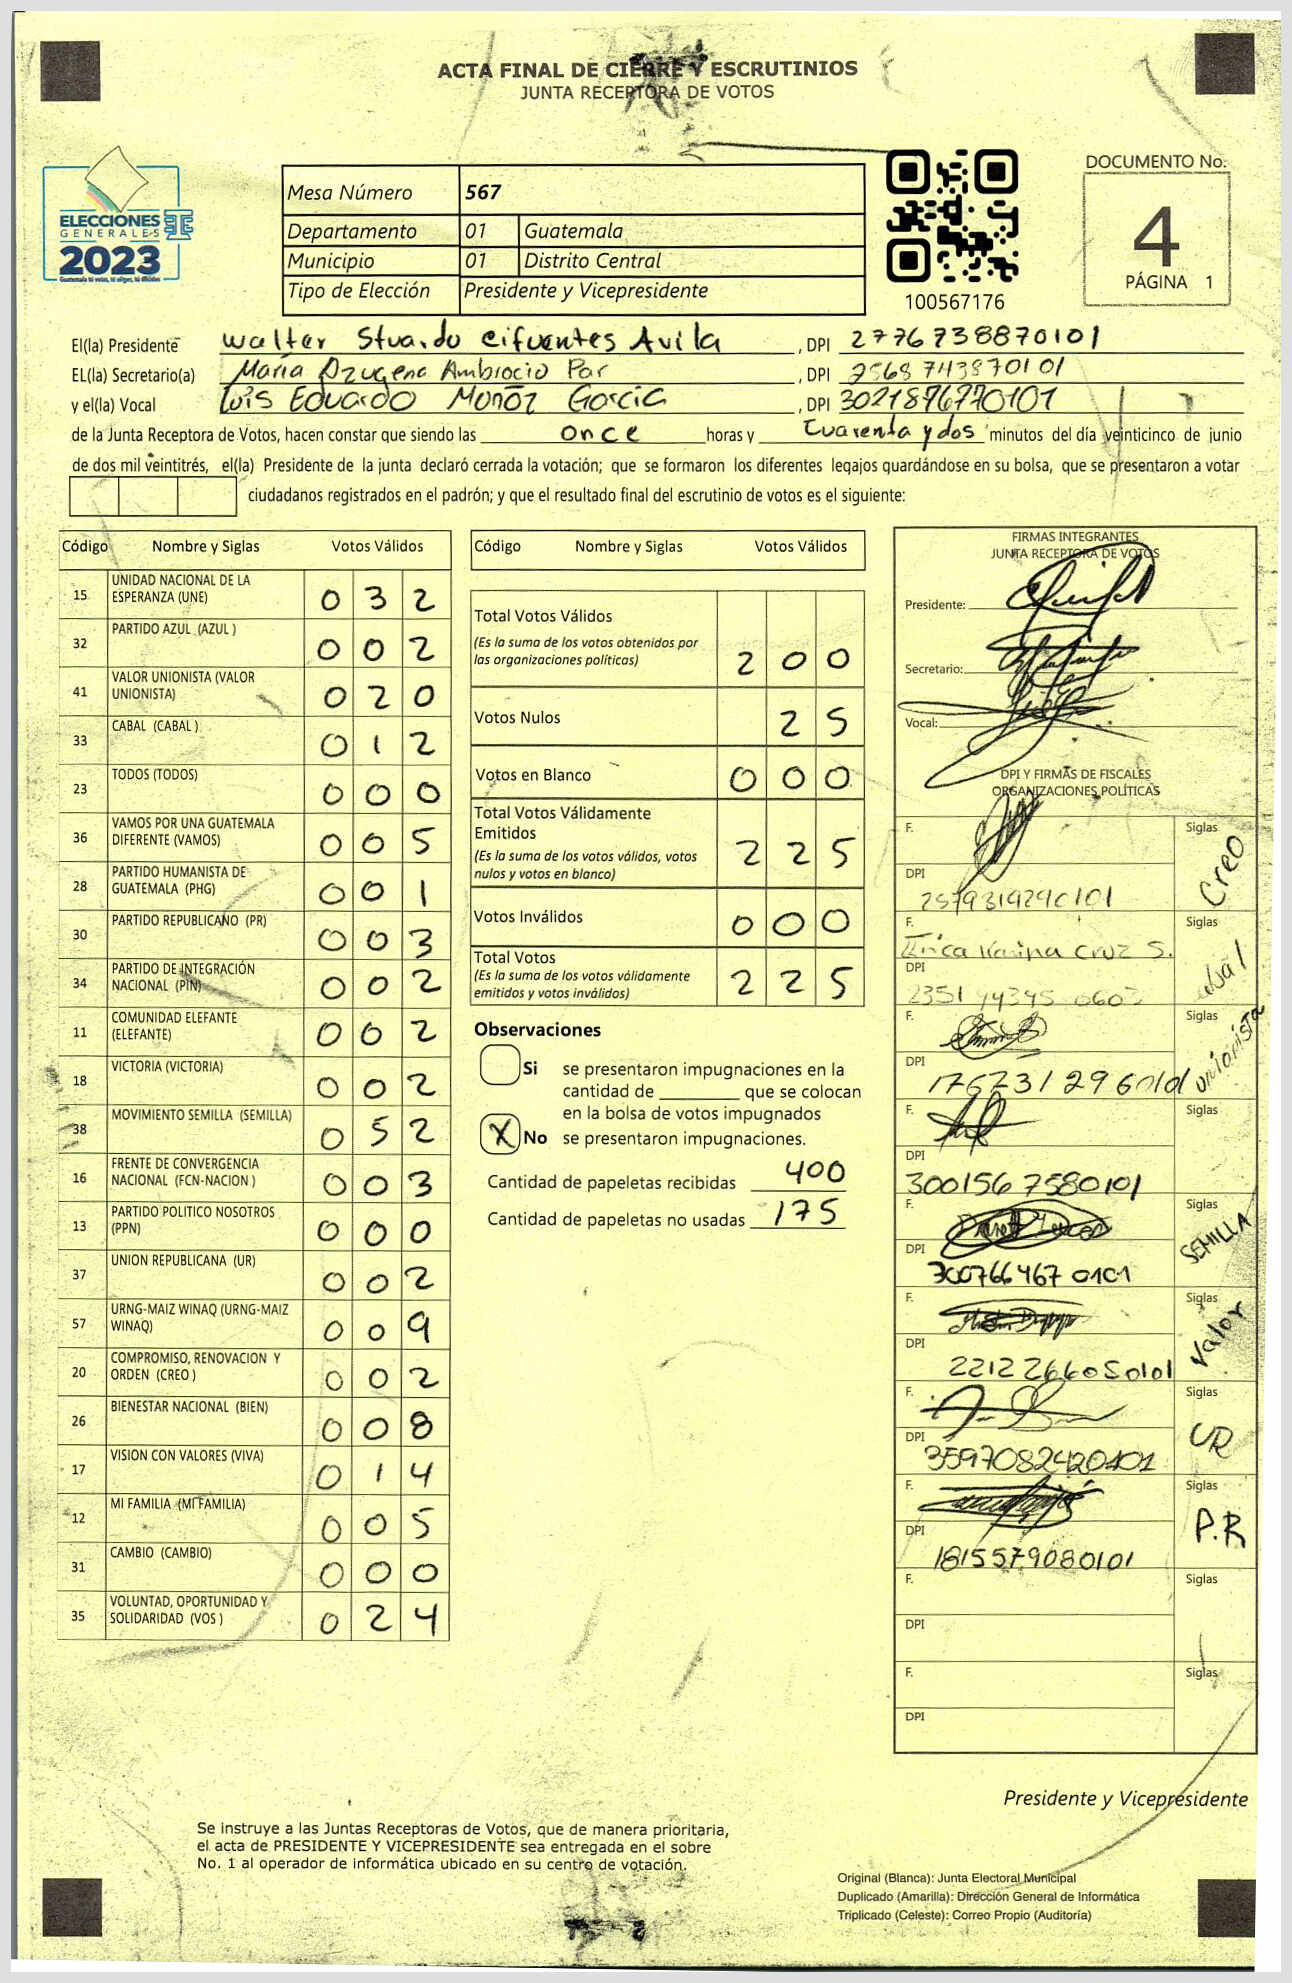 ACTA FINAL DE CIERRE Y ESCRUTINIOS
JUNTA RECEPTORA DE VOTOS
ELECCIONES
GENERALES
2023
Mesa Número 567
Departamento 01 Guatemala
Municipio 01 Distrito Central
Tipo de Elección Presidente y Vicepresidente
100567176
DOCUMENTO No.
4
PÁGINA 1
El(la) Presidente Walter Stuardo Cifuentes Avila, DPI 2776738870101
EL(la) Secretario(a) María Azugena Ambrocio Par, DPI 2568743870101
y el(la) Vocal Luis Eduardo Muñóz García, DPI 3021876770101
de la Junta Receptora de Votos, hacen constar que siendo las once horas y Cuarenta y dos minutos del día veinticinco de junio
de dos mil veintitrés, el(la) Presidente de la junta declaró cerrada la votación; que se formaron los diferentes legajos guardándose en su bolsa, que se presentaron a votar
ciudadanos registrados en el padrón; y que el resultado final del escrutinio de votos es el siguiente:
Código Nombre y Siglas Votos Válidos
15 UNIDAD NACIONAL DE LA ESPERANZA (UNE) 0 3 2
32 PARTIDO AZUL (AZUL ) 0 0 2
41 VALOR UNIONISTA (VALOR UNIONISTA) 0 2 0
33 CABAL (CABAL ) 0 1 2
23 TODOS (TODOS) 0 0 0
36 VAMOS POR UNA GUATEMALA DIFERENTE (VAMOS) 0 0 5
28 PARTIDO HUMANISTA DE GUATEMALA (PHG) 0 0 1
30 PARTIDO REPUBLICANO (PR) 0 0 3
34 PARTIDO DE INTEGRACIÓN NACIONAL (PIN) 0 0 2
11 COMUNIDAD ELEFANTE (ELEFANTE) 0 0 2
18 VICTORIA (VICTORIA) 0 0 2
38 MOVIMIENTO SEMILLA (SEMILLA) 0 5 2
16 FRENTE DE CONVERGENCIA NACIONAL (FCN-NACION ) 0 0 3
13 PARTIDO POLITICO NOSOTROS (PPN) 0 0 0
37 UNION REPUBLICANA (UR) 0 0 2
57 URNG-MAIZ WINAQ (URNG-MAIZ WINAQ) 0 0 9
20 COMPROMISO, RENOVACION Y ORDEN (CREO ) 0 0 2
26 BIENESTAR NACIONAL (BIEN) 0 0 8
17 VISION CON VALORES (VIVA) 0 1 4
12 MI FAMILIA (MI FAMILIA) 0 0 5
31 CAMBIO (CAMBIO) 0 0 0
35 VOLUNTAD, OPORTUNIDAD Y SOLIDARIDAD (VOS ) 0 2 4
Código Nombre y Siglas Votos Válidos
Total Votos Válidos 2 0 0
(Es la suma de los votos obtenidos por
las organizaciones políticas)
Votos Nulos 2 5
Votos en Blanco 0 0 0
Total Votos Válidamente
Emitidos 2 2 5
(Es la suma de los votos válidos, votos
nulos y votos en blanco)
Votos Inválidos 0 0 0
Total Votos 2 2 5
(Es la suma de los votos válidamente
emitidos y votos inválidos)
Observaciones
Si se presentaron impugnaciones en la
cantidad de ______ que se colocan
en la bolsa de votos impugnados
X No se presentaron impugnaciones.
Cantidad de papeletas recibidas 400
Cantidad de papeletas no usadas 175
FIRMAS INTEGRANTES
JUNTA RECEPTORA DE VOTOS
Presidente:
Secretario:
Vocal:
DPI Y FIRMAS DE FISCALES
ORGANIZACIONES POLÍTICAS
F. Siglas Creo
DPI 2579319290101
F. Karina Cruz S. Siglas
DPI
F. Siglas unionista
DPI
F. Siglas
DPI 3001567580101
F. Siglas SEMILLA
DPI 3007664670101
F. Siglas Valor
DPI 2212266050101
F. Siglas UR
DPI 3597082420101
F. Siglas P.R
DPI 1815579080101
F. Siglas
DPI
F. Siglas
DPI
Presidente y Vicepresidente
Se instruye a las Juntas Receptoras de Votos, que de manera prioritaria,
el acta de PRESIDENTE Y VICEPRESIDENTE sea entregada en el sobre
No. 1 al operador de informática ubicado en su centro de votación.
Original (Blanca): Junta Electoral Municipal
Duplicado (Amarilla): Dirección General de Informática
Triplicado (Celeste): Correo Propio (Auditoría)